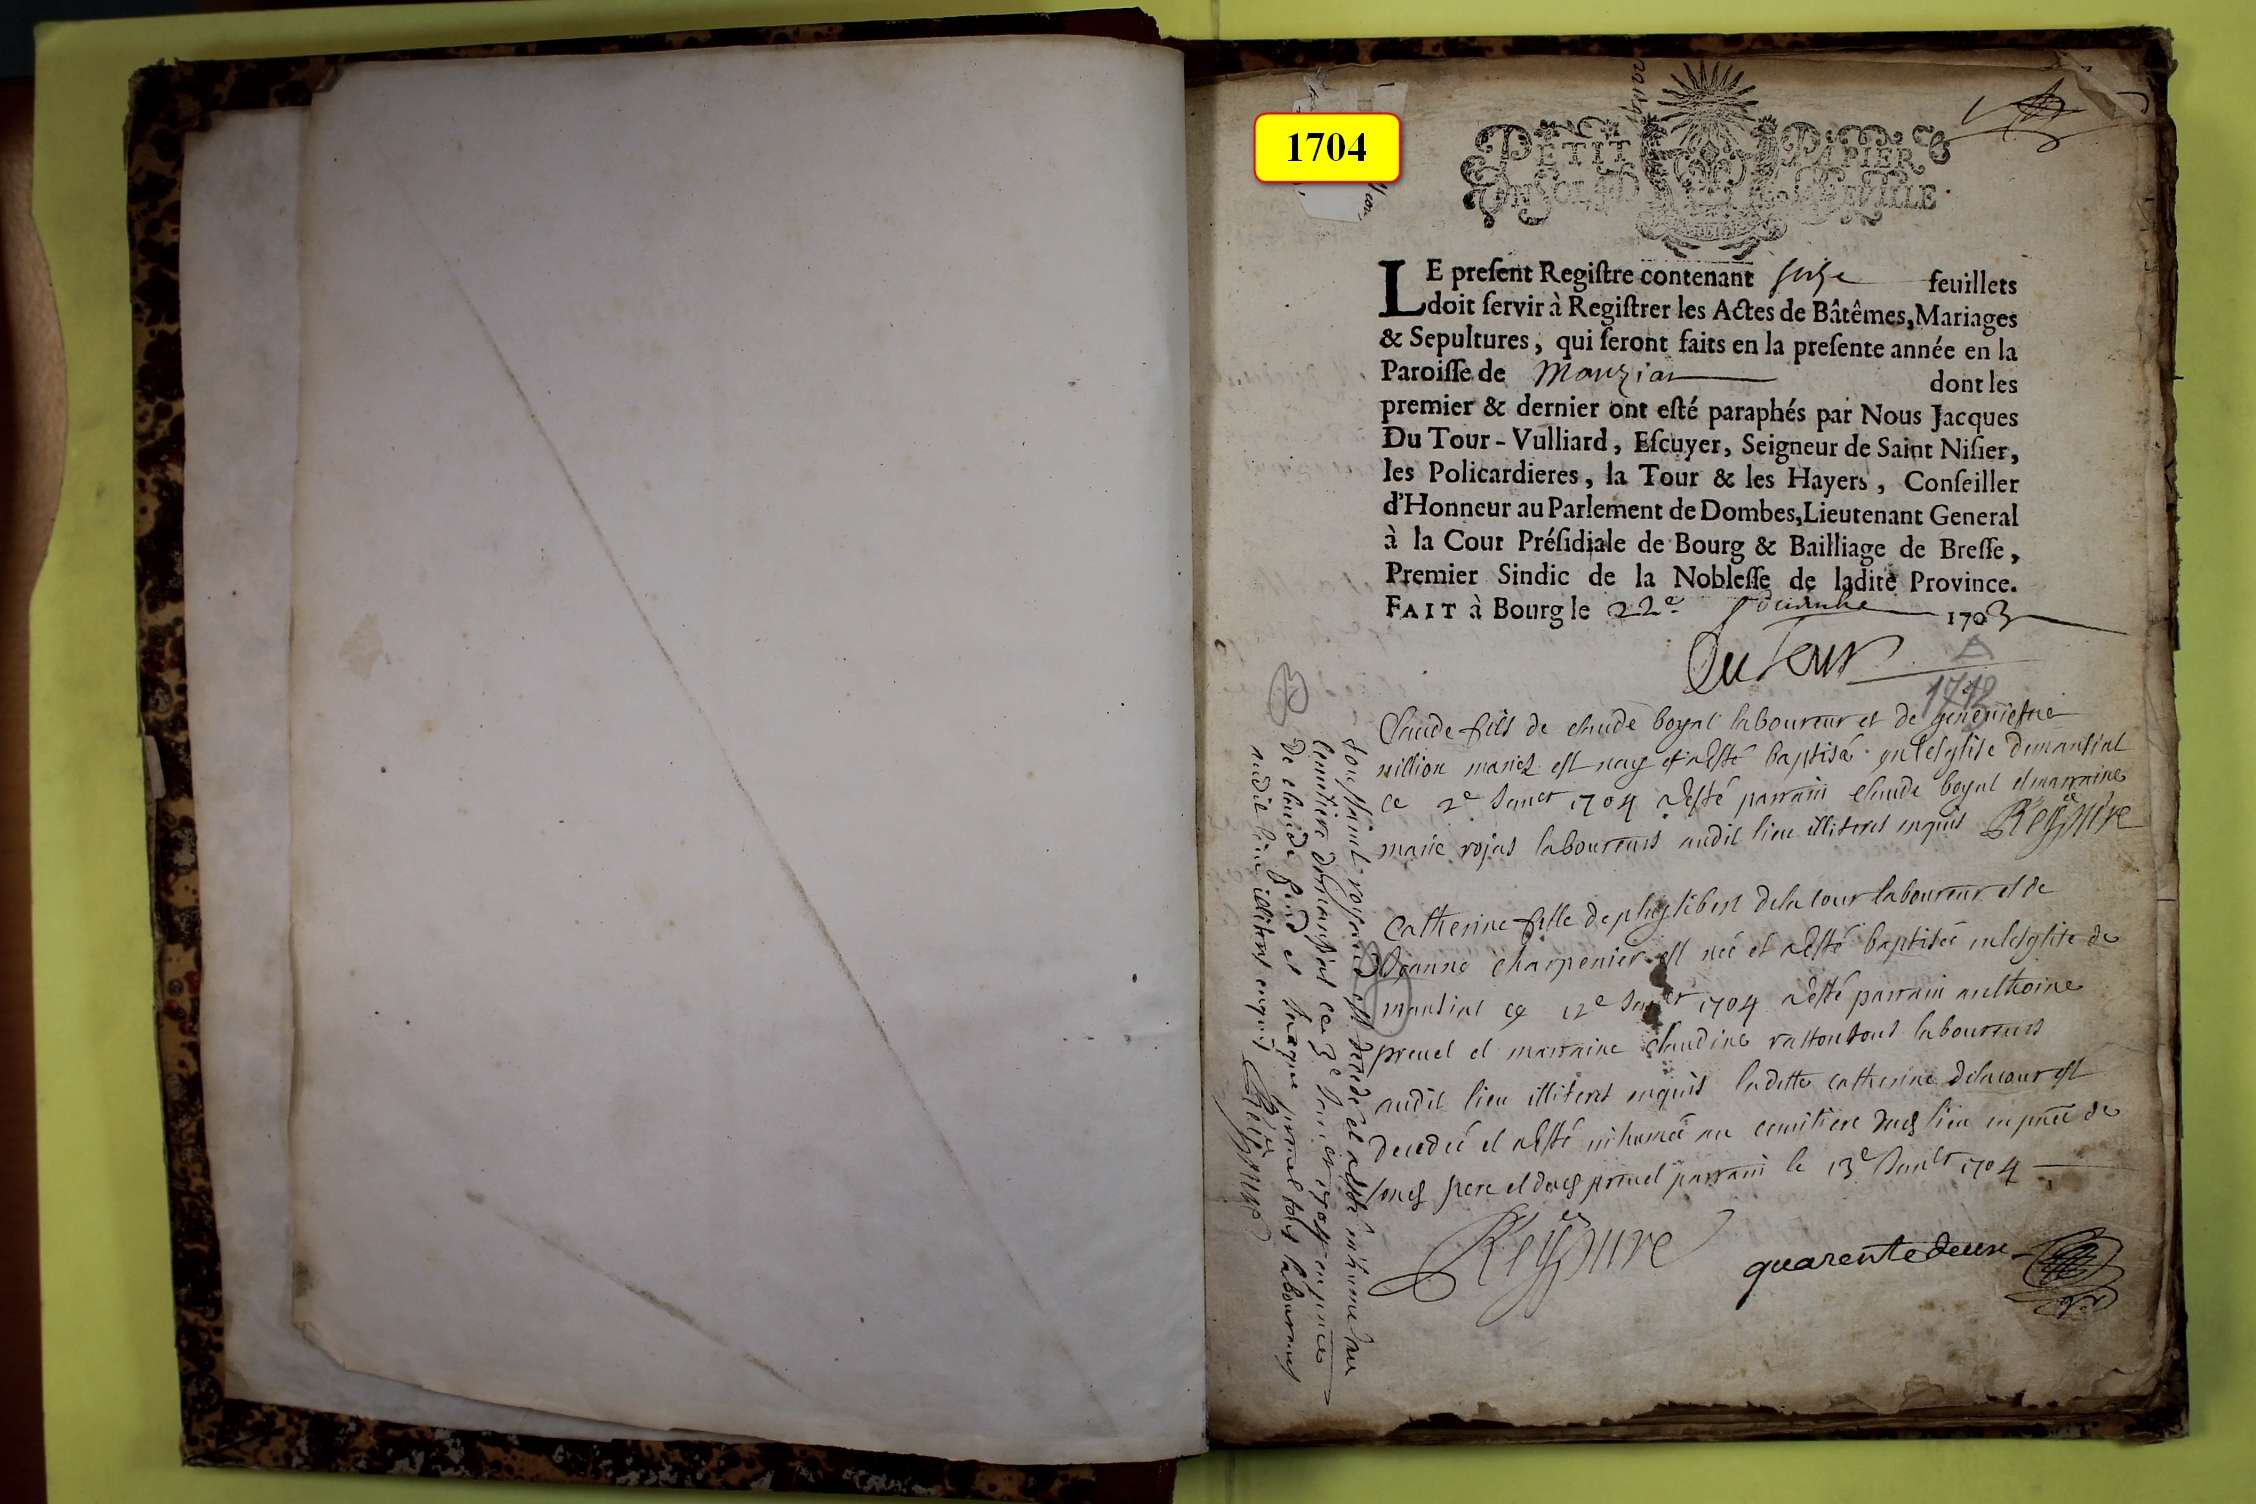 1704
PETIT PAPIER
LE preſent Regiſtre contenant ſeize feuillets
doit ſervir à Regiſtrer les Actes de Bâtêmes, Mariages
& Sepultures, qui ſeront faits en la preſente année en la
Paroiſſe de Manziat dont les
premier & dernier ont eſté paraphés par Nous Jacques
Du Tour-Vulliard, Eſcuyer, Seigneur de Saint Niſier,
les Policardieres, la Tour & les Hayers, Conſeiller
d'Honneur au Parlement de Dombes, Lieutenant General
à la Cour Préſidiale de Bourg & Bailliage de Breſſe,
Premier Sindic de la Nobleſſe de ladite Province.
FAIT à Bourg le 22e decembre 1703
Du Tour
A
1712
Claude fils de claude boyat laboureur et de genevieſve
million mariez est nay et a esté baptisé en l'esglise de mansiat
ce 2e Janer 1704 a esté parrain claude boyat et marraine
marie rojas laboureurs audit lieu illiteres enquis
Catherine fille de philibert delacour laboureur et de
Jeanne charpenier est née et a esté baptisée en l'esglise de
mansiat ce 12e Janer 1704 a esté parrain anthoine
prevel et marraine claudine laboureurs
audit lieu illiteres enquis ladette catherine delacour est
decedée et a esté inhumée au cemitiere dud lieu en pnce de
sond pere et dud prevel parrain le 13e Janer 1704
quarente deux
est decedé et a esté inhumé au
cemitiere de mansiat ce 3e Janer 1704 en pnce
De claude et prevel tous laboureurs
audit lieu illiteres enquis